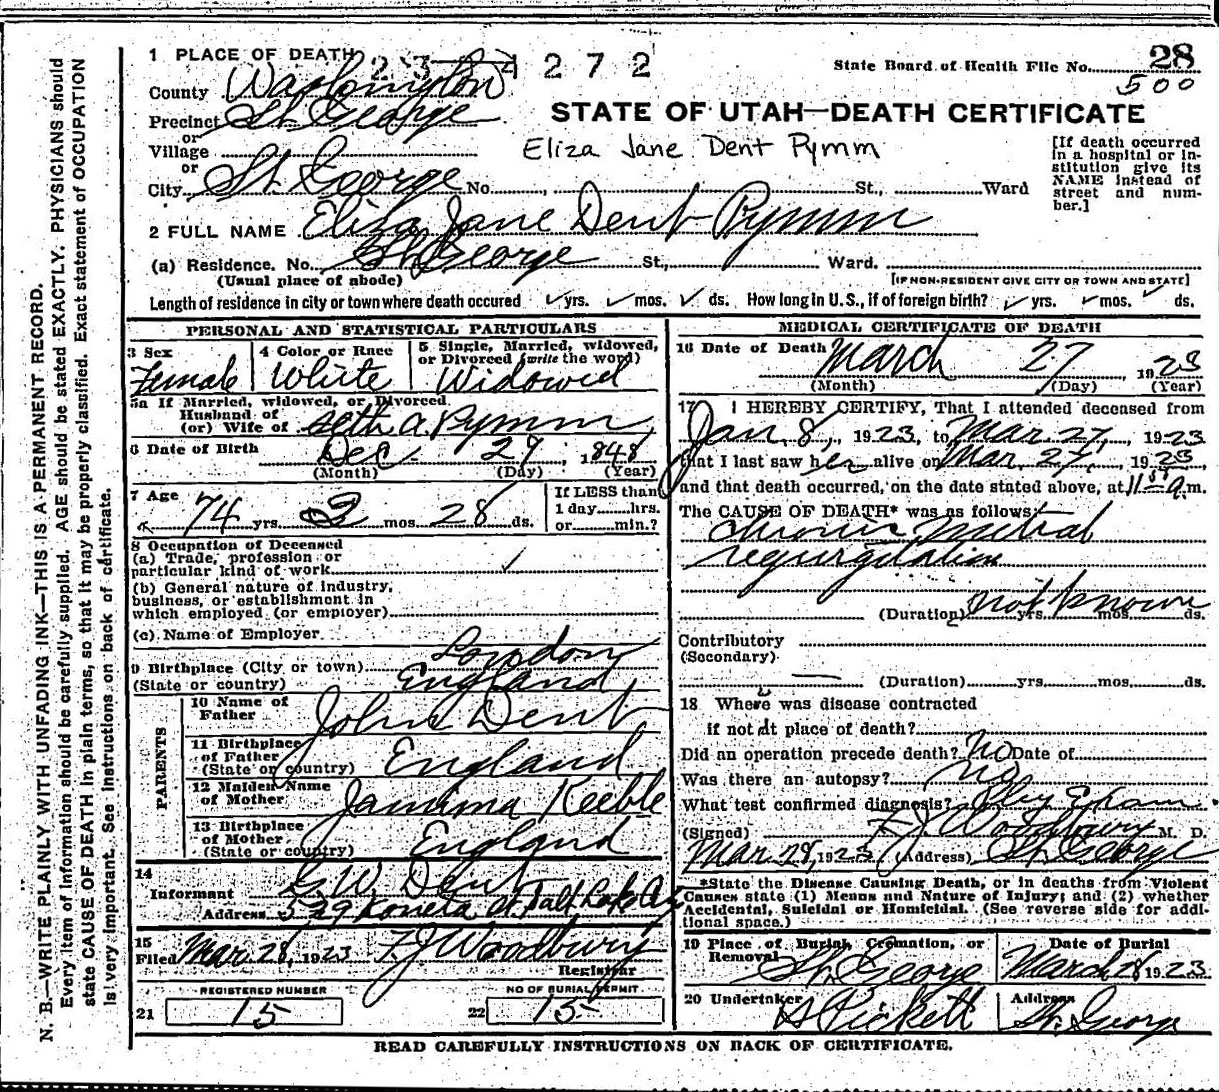 1 PLACE OF DEATH
23 4272
State Board of Health File No. 28
500
County Washington
Precinct St. George
or
Village
or
City St. George No. St., Ward
STATE OF UTAH—DEATH CERTIFICATE
Eliza Jane Dent Pymm
[If death occurred
in a hospital or in-
stitution give its
NAME instead of
street and num-
ber.]
2 FULL NAME Eliza Jane Dent Pymm
(a) Residence. No. St. George St., Ward.
(Usual place of abode) [IF NON-RESIDENT GIVE CITY OR TOWN AND STATE]
Length of residence in city or town where death occured ✓ yrs. ✓ mos. ✓ ds. How long in U.S., if of foreign birth? ✓ yrs. ✓ mos. ✓ ds.
PERSONAL AND STATISTICAL PARTICULARS
3 Sex
Female
4 Color or Race
White
5 Single, Married, widowed,
or Divorced (write the word)
Widowed
5a If Married, widowed, or Divorced
Husband of
(or) Wife of Seth A. Pymm
6 Date of Birth Dec 27, 1848
(Month) (Day) (Year)
7 Age
74 yrs. 2 mos. 28 ds.
If LESS than
1 day......hrs.
or......min.?
8 Occupation of Deceased
(a) Trade, profession or
particular kind of work ✓
(b) General nature of industry,
business, or establishment in
which employed (or employer)
(c) Name of Employer
9 Birthplace (City or town) London
(State or country) England
PARENTS
10 Name of
Father John Dent
11 Birthplace
of Father England
(State or country)
12 Maiden Name
of Mother Jamima Keeble
13 Birthplace
of Mother England
(State or country)
14
Informant G. W. Dent
Address 529 Koneta St. Salt Lake City
15
Filed Mar 28, 1923 F. J. Woodbury
Registrar
REGISTERED NUMBER
21 15
NO OF BURIAL PERMIT
22 15
MEDICAL CERTIFICATE OF DEATH
16 Date of Death March 27 1923
(Month) (Day) (Year)
17 I HEREBY CERTIFY, That I attended deceased from
Jan 8, 1923, to Mar. 27, 1923
that I last saw her alive on Mar. 27, 1923
and that death occurred, on the date stated above, at 11 a.m.
The CAUSE OF DEATH* was as follows:
Chronic Mitral
regurgitation
(Duration) not known yrs. mos. ds.
Contributory
(Secondary)
(Duration) yrs. mos. ds.
18 Where was disease contracted
if not at place of death?
Did an operation precede death? No Date of
Was there an autopsy? No
What test confirmed diagnosis? Phy Exam.
(Signed) F. J. Woodbury M. D.
Mar 28, 1923 (Address) St. George
*State the Disease Causing Death, or in deaths from Violent
Causes state (1) Means and Nature of Injury; and (2) whether
Accidental, Suicidal or Homicidal. (See reverse side for addi-
tional space.)
19 Place of Burial, Cremation, or
Removal St. George
Date of Burial
March 28 1923
20 Undertaker
A Pickett
Address
St. George
READ CAREFULLY INSTRUCTIONS ON BACK OF CERTIFICATE.
N. B.—WRITE PLAINLY WITH UNFADING INK—THIS IS A PERMANENT RECORD.
Every item of information should be carefully supplied. AGE should be stated EXACTLY. PHYSICIANS should
state CAUSE OF DEATH in plain terms, so that it may be properly classified. Exact statement of OCCUPATION
is very important. See instructions on back of certificate.